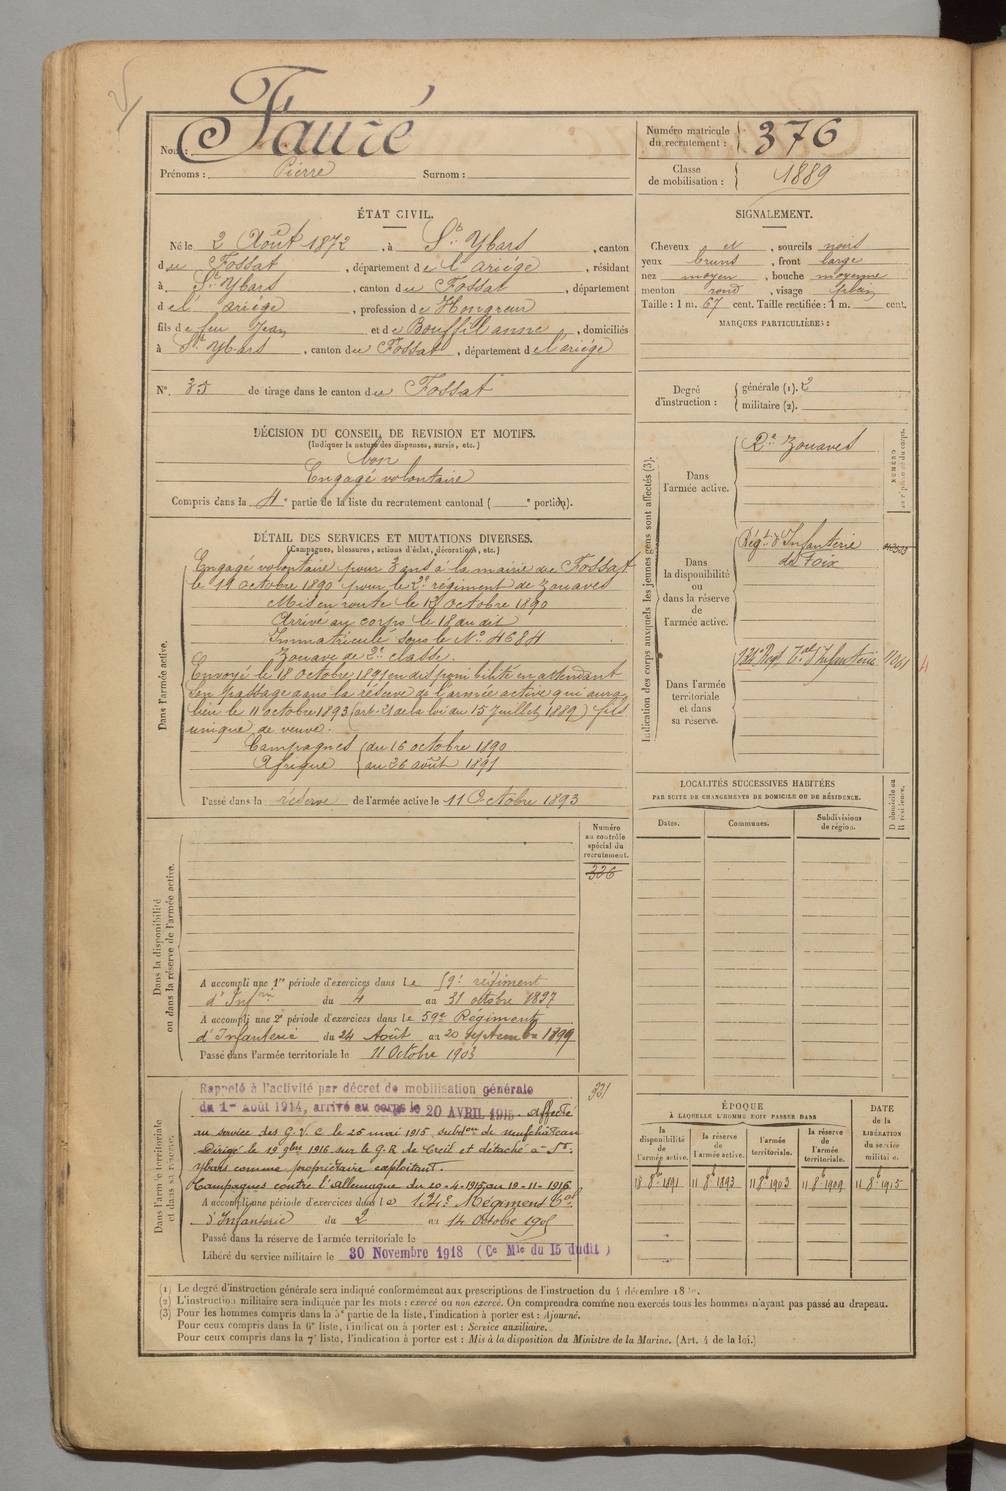 Nom : Fauré
Prénoms : Pierre Surnom :
Numéro matricule du recrutement : 376
Classe de mobilisation : 1889
ÉTAT CIVIL.
Né le 2 Août 1872, à St Ybars, canton
du Fossat, département de l'ariége, résidant
à St Ybars, canton du Fossat, département
de l' ariége, profession de Hongreur
fils de feu Jean et de Bouffil anne, domiciliés
à St Ybars, canton du Fossat, département de l'ariége
No. 35 de tirage dans le canton du Fossat
SIGNALEMENT.
Cheveux et, sourcils noirs
yeux bruns, front large
nez moyen, bouche moyenne
menton rond, visage plein
Taille : 1 m. 67 cent. Taille rectifiée : 1 m. cent.
MARQUES PARTICULIÈRES :
Degré d'instruction : générale (1). 2
militaire (2).
DÉCISION DU CONSEIL DE REVISION ET MOTIFS.
(Indiquer la nature des dispenses, sursis, etc.)
bon
Engagé volontaire
Compris dans la 4e partie de la liste du recrutement cantonal ( e portion).
DÉTAIL DES SERVICES ET MUTATIONS DIVERSES.
(Campagnes, blessures, actions d'éclat, décorations, etc.)
Dans l'armée active.
Engagé volontaire pour 3 ans à la mairie du Fossat
le octobre 1890 pour le 2e régiment de Zouaves
Mis en route le octobre 1890
Arrivé au corps le 18 du dit
Immatriculé sous le No 4684
Zouave de 2e classe.
Envoyé le 18 octobre 1891 en disponibilité en attendant
son passage dans la réserve de l'armée active qui aura
lieu le 11 octobre 1893 (art. 21 de la loi du 15 Juillet 1889) fils
unique de veuve.
Campagnes du 16 octobre 1890
Afrique au 26 août 1891
Passé dans la réserve de l'armée active le 11 Octobre 1893
Indication des corps auxquels les jeunes gens sont affectés (3).
NUMÉRO au répertoire du corps.
Dans l'armée active.
2e Zouaves
Dans la disponibilité ou dans la réserve de l'armée active.
Régt d'Infanterie
de Foix
Dans l'armée territoriale et dans sa réserve.
Regt Tal d'Infanterie
4
LOCALITÉS SUCCESSIVES HABITÉES
PAR SUITE DE CHANGEMENTS DE DOMICILE OU DE RÉSIDENCE.
Dates. Communes. Subdivisions de région. D domicile ou R résidence.
Numéro au contrôle spécial du recrutement.
336
Dans la disponibilité ou dans la réserve de l'armée active.
A accompli une 1re période d'exercices dans le 59e régiment
d'Infrie du 4 au 31 octobre 1897
A accompli une 2e période d'exercices dans le 59e Régiment
d'Infanterie du 24 Août au 20 septembre 1899
Passé dans l'armée territoriale le 11 Octobre 1903
Dans l'armée territoriale et dans sa réserve.
Rappelé à l'activité par décret de mobilisation générale
du 1er Août 1914, arrivé au corps le 20 AVRIL 1915. affecté
au service des G. V. C le 25 mai 1915, subdon de neufchâteau
Dirigé le 19 9bre 1916 sur le G. R. de Creil et détaché à St
Ybars comme propriétaire exploitant.
Campagnes contre l'allemagne du 20-4-1915 au 19-11-1916
A accompli une période d'exercices dans le 134e Régiment Tal
d'Infanterie du 2 au 14 octobre 1905
Passé dans la réserve de l'armée territoriale le
Libéré du service militaire le 30 Novembre 1918 (Ce Mle du 15 dudit)
331
ÉPOQUE
À LAQUELLE L'HOMME DOIT PASSER DANS
DATE de la LIBÉRATION du service militaire.
la disponibilité de l'armée active. la réserve de l'armée active. l'armée territoriale. la réserve de l'armée territoriale.
18 8bre 1891 11 8bre 1893 11 8bre 1903 11 8bre 1909 11 8bre 1915
(1) Le degré d'instruction générale sera indiqué conformément aux prescriptions de l'instruction du 4 décembre 18
(2) L'instruction militaire sera indiquée par les mots : exercé ou non exercé. On comprendra comme non exercés tous les hommes n'ayant pas passé au drapeau.
(3) Pour les hommes compris dans la 5e partie de la liste, l'indication à porter est : Ajourné.
Pour ceux compris dans la 6e liste, l'indication à porter est : Service auxiliaire.
Pour ceux compris dans la 7e liste, l'indication à porter est : Mis à la disposition du Ministre de la Marine. (Art. 4 de la loi.)